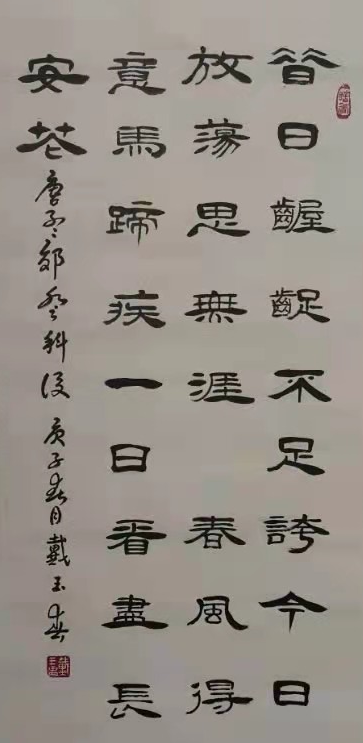 昔日齷齪不足誇今日
放蕩思無涯春風得
意馬蹄疾一日看盡長
安花
唐孟郊登科後 庚子春月戴玉春